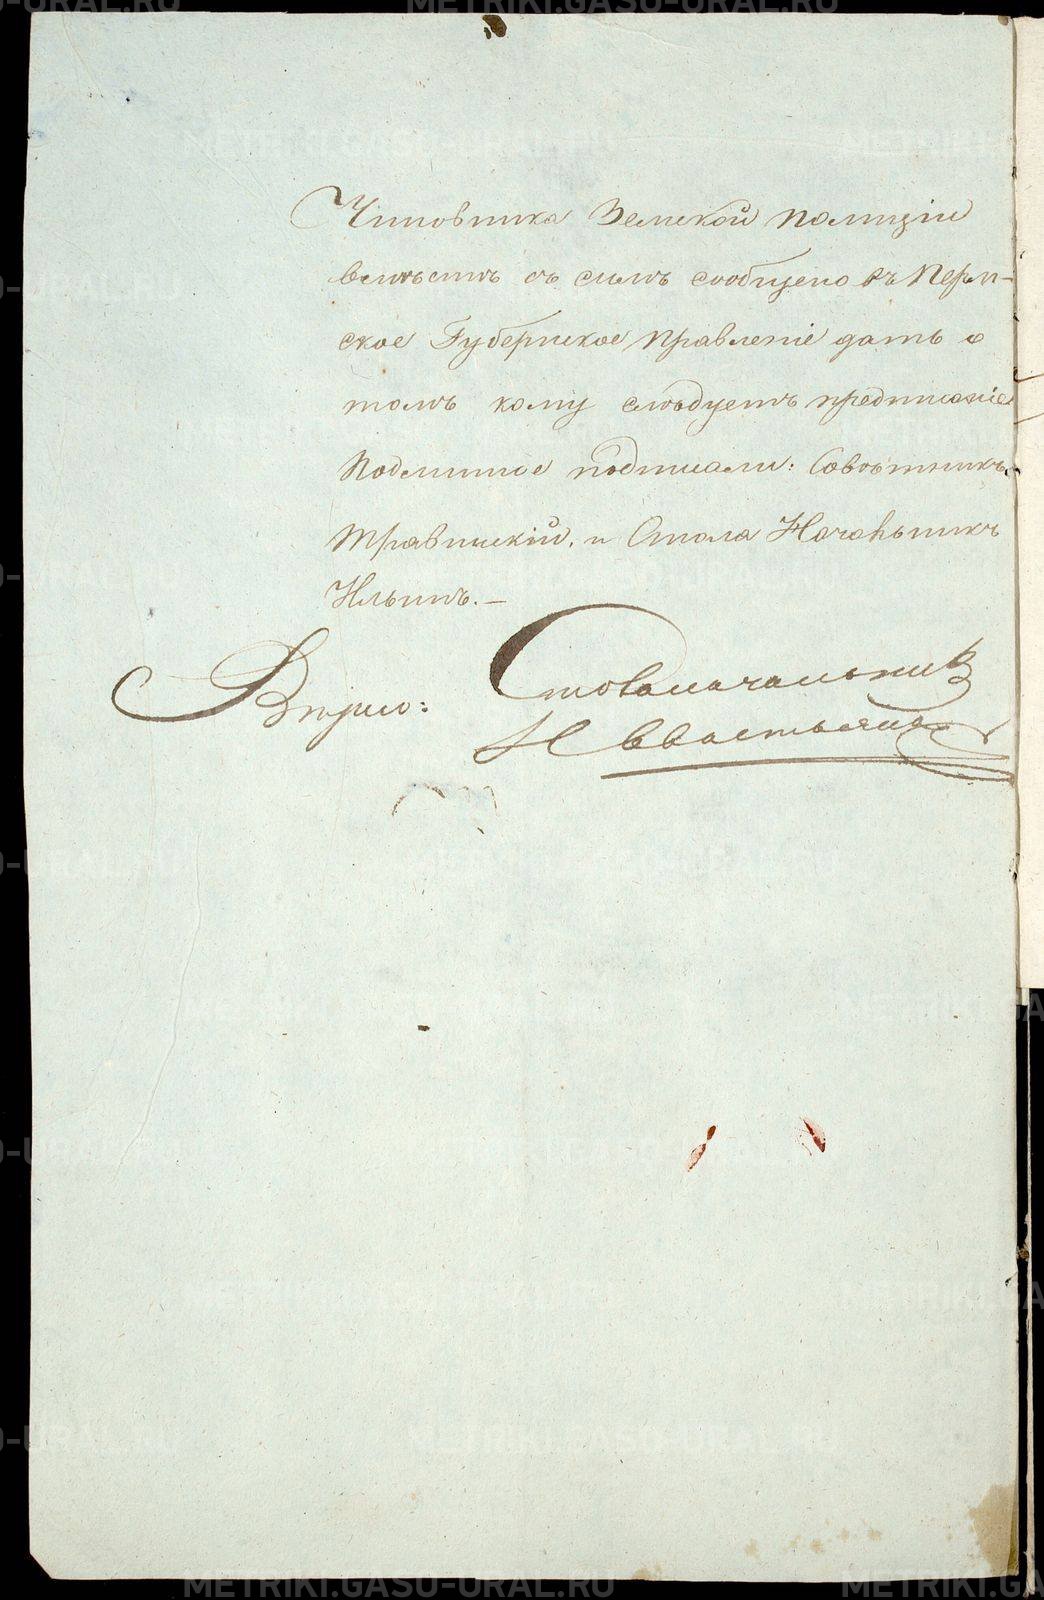 Чиновника Земской полиціи
вмѣстѣ съ симъ сообщено въ Перм-
ское Губернское правленіе дать о
томъ кому слѣдуетъ предписаніе
Подлинное подписали: Совѣтникъ
Травинскій, и Стола Начальникъ
Ильинъ.—
Вѣрно: Столоначальник
Н Евастьянов